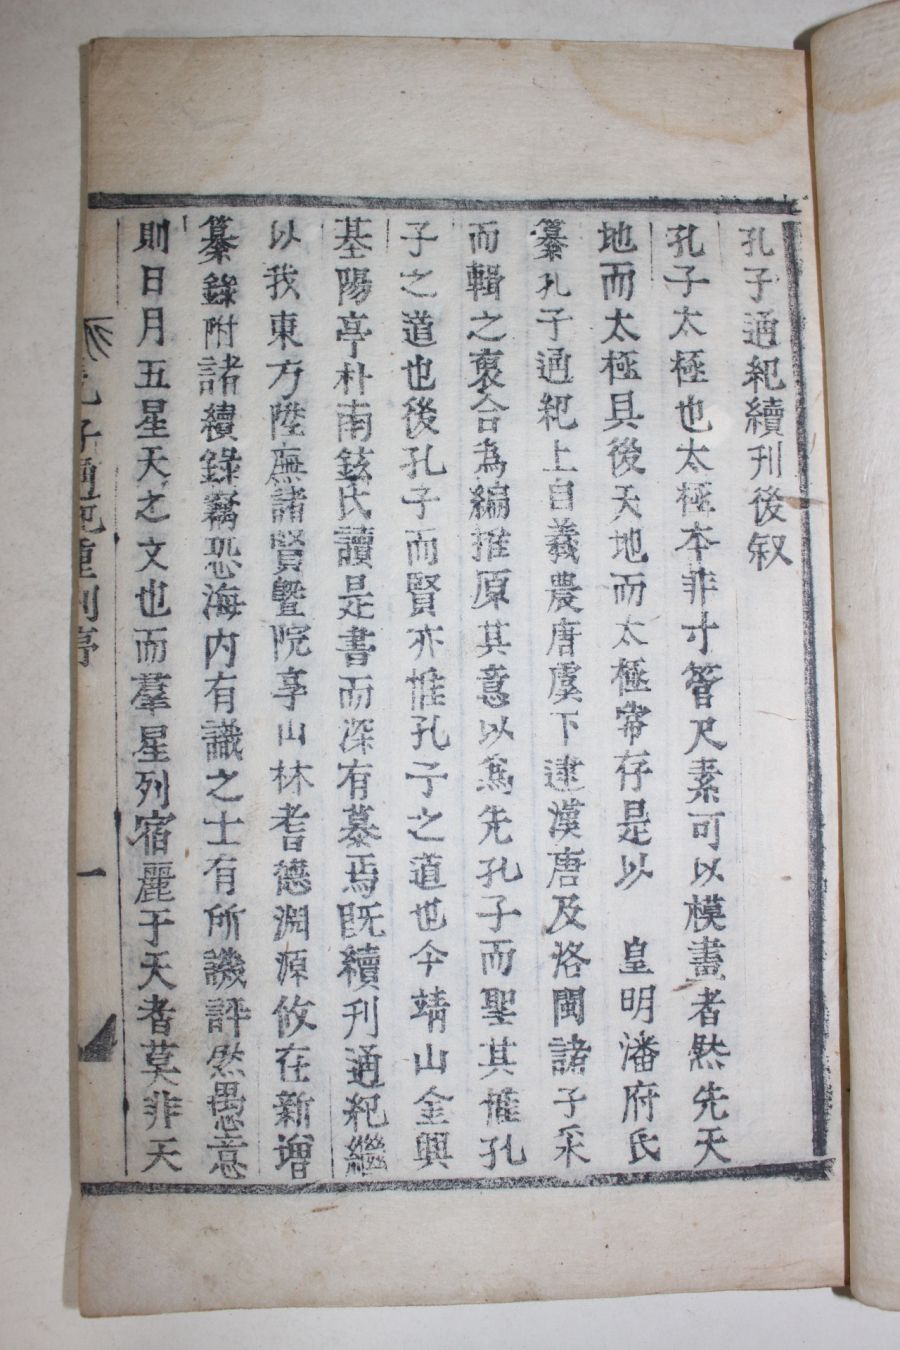 孔子通紀續刊後叙
孔子太極也太極本非寸管尺素可以模畫者然先天
地而太極具後天地而太極常存是以 皇明潘府氏
纂孔子通紀上自羲農唐虞下逮漢唐及洛閩諸子采
而輯之裒合為編推原其意以爲先孔子而聖其惟孔
子之道也後孔子而賢亦惟孔子之道也今靖山金興
基陽亭朴南鉉氏讀是書而深有慕焉旣續刊通紀繼
以我東方陞廡諸賢曁院享山林耆德淵源攸在新增
纂錄附諸續錄竊恐海内有識之士有所譏評然愚意
則日月五星天之文也而羣星列宿麗于天者莫非天
孔子通紀重刊序
一